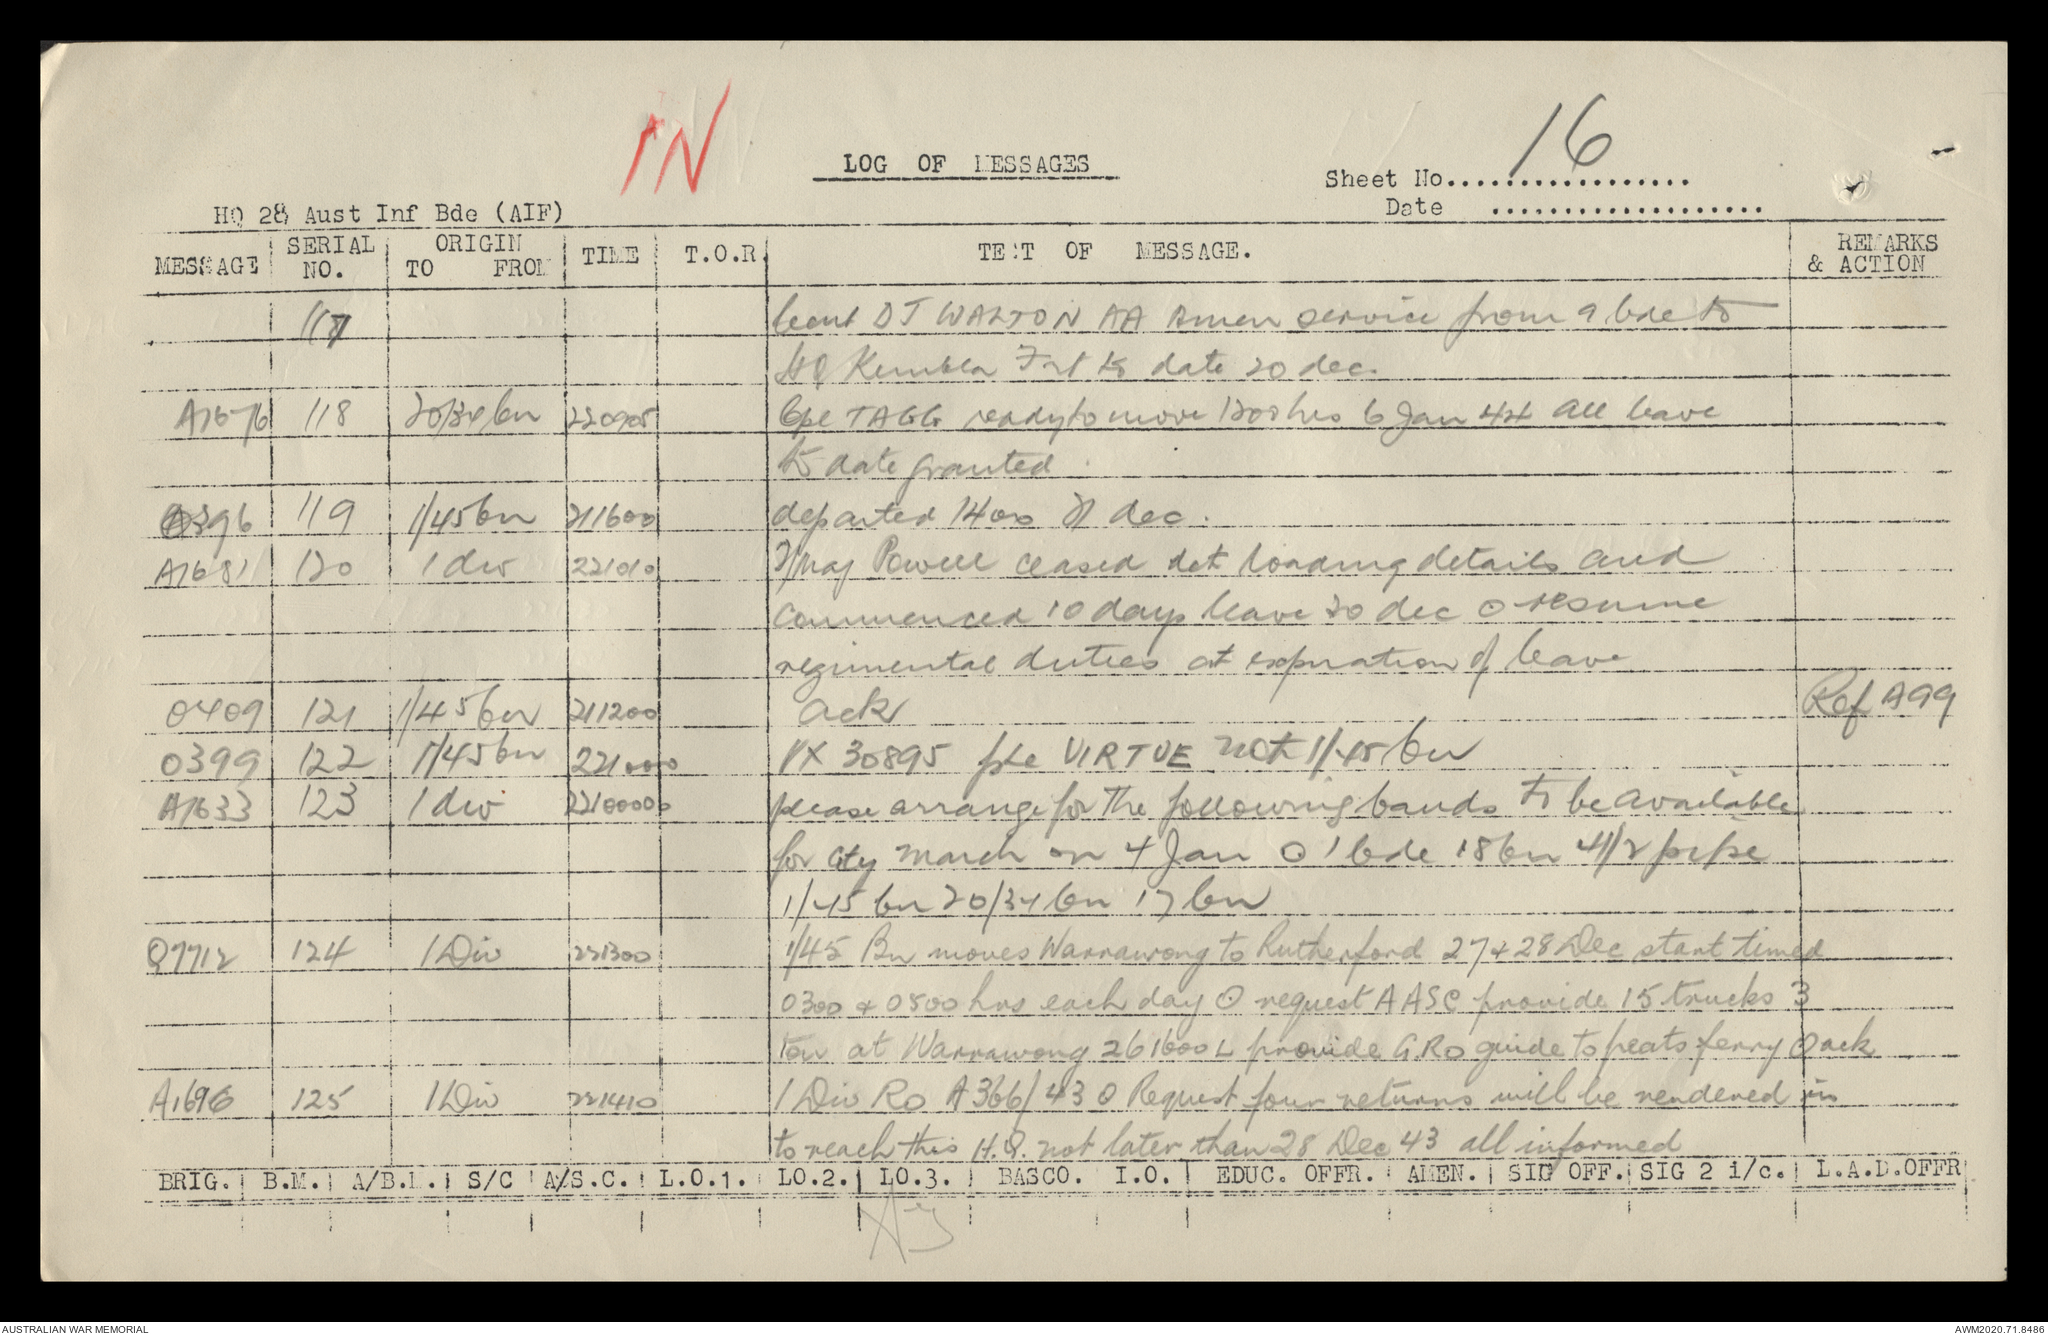 IN
16
LOG OF MESSAGES
Sheet No..................
Date ...................
HQ 28 Aust Inf Bde (AIF)
MESSAGE SERIAL NO. ORIGIN TO FROM TIME T.O.R. TEXT OF MESSAGE. REMARKS & ACTION
117 Lieut DJ WALTON AA Amen service from 9 bde to
HQ Kembla Frt to date 20 dec.
A1676 118 20/34 bn 220905 Cpl TAGG ready to move 1200 hrs 6 Jan 44 all leave
to date granted
O396 119 1/45 bn 211600 departed 1400 21 dec.
A1681 120 1 div 221010 T/Maj Powell ceased det loading details and
commenced 10 days leave 20 dec O resume
regimental duties at expiration of leave
O409 121 1/45 bn 211200 ack Ref A99
O399 122 1/45 bn 221000 VX 30895 pte VIRTUE not 1/45 bn
A1633 123 1 div 2210000 please arrange for the following bands to be available
for city march on 4 Jan O 1 bde 18 bn 41/2 pipe
1/45 bn 20/34 bn 17 bn
Q7712 124 1 Div 221300 1/45 Bn moves Warrawong to Rutherford 27 & 28 Dec start timed
0300 & 0500 hrs each day O request AASC provide 15 trucks 3
ton at Warrawong 261600L provide G.RO guide to peats ferry O ack
A1696 125 1 Div 221410 1 Div RO A366/43 O Request four returns will be rendered in
to reach this H.Q. not later than 28 Dec 43 all informed
BRIG. B.M. A/B.M. S/C A/S.C. L.O.1. LO.2. LO.3. BASCO. I.O. EDUC. OFFR. AMEN. SIG OFF. SIG 2 i/c. L.A.D.OFFR
AUSTRALIAN WAR MEMORIAL
AWM2020.71.8486